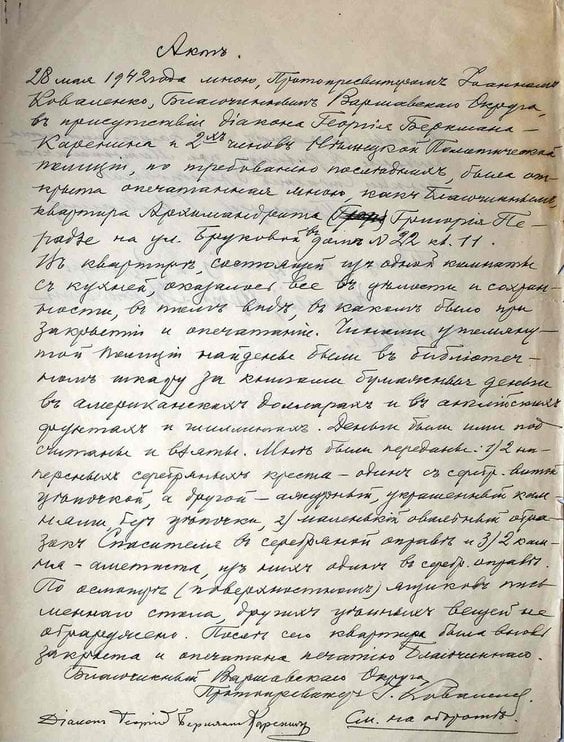 Актъ.
28 мая 1942 года мною, Протопресвитеромъ Іоанномъ
Коваленко, Благочиннымъ Варшавскаго Округа,
въ присутствіи діакона Георгія Беркмана-
Каренина и 2хъ чиновъ Нѣмецкой Политической
полиціи, по требованію послѣднихъ, была от-
крыта опечатанная мною, какъ Благочиннымъ,
квартира Архимандрита Григорія Пе-
радзе на ул. Бруковой въ домѣ № 22 кв. 11.
Въ квартирѣ, состоящей изъ одной комнаты
съ кухней, оказалось все въ цѣлости и сохран-
ности, въ томъ видѣ, въ какомъ было при
закрытіи и опечатаніи. Чинами упомяну-
той полиціи найдены были въ библіотеч-
номъ шкафу за книгами бумажныя деньги
въ американскихъ долларахъ и въ англійскихъ
фунтахъ и шиллингахъ. Деньги были ими под-
считаны и взяты. Мнѣ были переданы: 1/ 2 на-
персныхъ серебряныхъ креста – одинъ съ серебр. витой
цѣпочкой, а другой – ажурный, украшенный кам-
нями, безъ цѣпочки, 2/ маленькій овальный обра-
зокъ Спасителя въ серебряной оправѣ и 3/ 2 кам-
ня – аметиста, изъ нихъ одинъ въ серебр. оправѣ.
По осмотрѣ (поверхностномъ) ящиковъ пись-
меннаго стола, другихъ цѣнныхъ вещей не
обнаружено. Послѣ сего квартира была вновь
закрыта и опечатана печатію Благочиннаго.
Благочинный Варшавскаго Округа
Протопресвитеръ І. Коваленко
Діаконъ Георгій Беркманъ Каренинъ См. на оборотѣ.